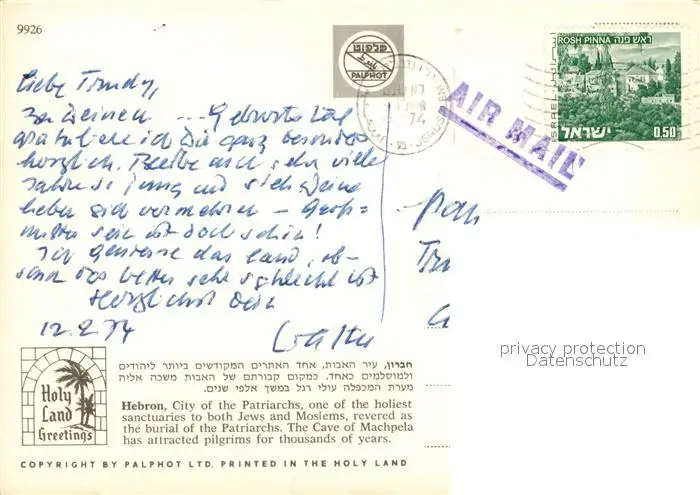 9926
פלפוט
PALPHOT
ROSH PINNA ראש פנה
ISRAEL
ישראל 0.50
JERUS
74
AIR MAIL
Liebe Trudy,
zu Deinem ... Geburtstag
gratuliere ich Dir ganz besonders
herzlich. Bleibe auch sehr viele
Jahre so jung und sieh Deine
lieben sich vermehren - Groß-
mutter sein ist doch schön!
Ich geniesse das Land, ob-
schon das Wetter sehr schlecht ist
Herzlichst Dein
12.2.74
Walter
privacy protection
Datenschutz
Holy
Land
Greetings
חברון, עיר האבות, אחד האתרים המקודשים ביותר ליהודים
ולמוסלמים כאחד. כמקום קבורתם של האבות משכה אליה
מערת המכפלה עולי רגל במשך אלפי שנים.
Hebron, City of the Patriarchs, one of the holiest
sanctuaries to both Jews and Moslems, revered as
the burial of the Patriarchs. The Cave of Machpela
has attracted pilgrims for thousands of years.
COPYRIGHT BY PALPHOT LTD. PRINTED IN THE HOLY LAND